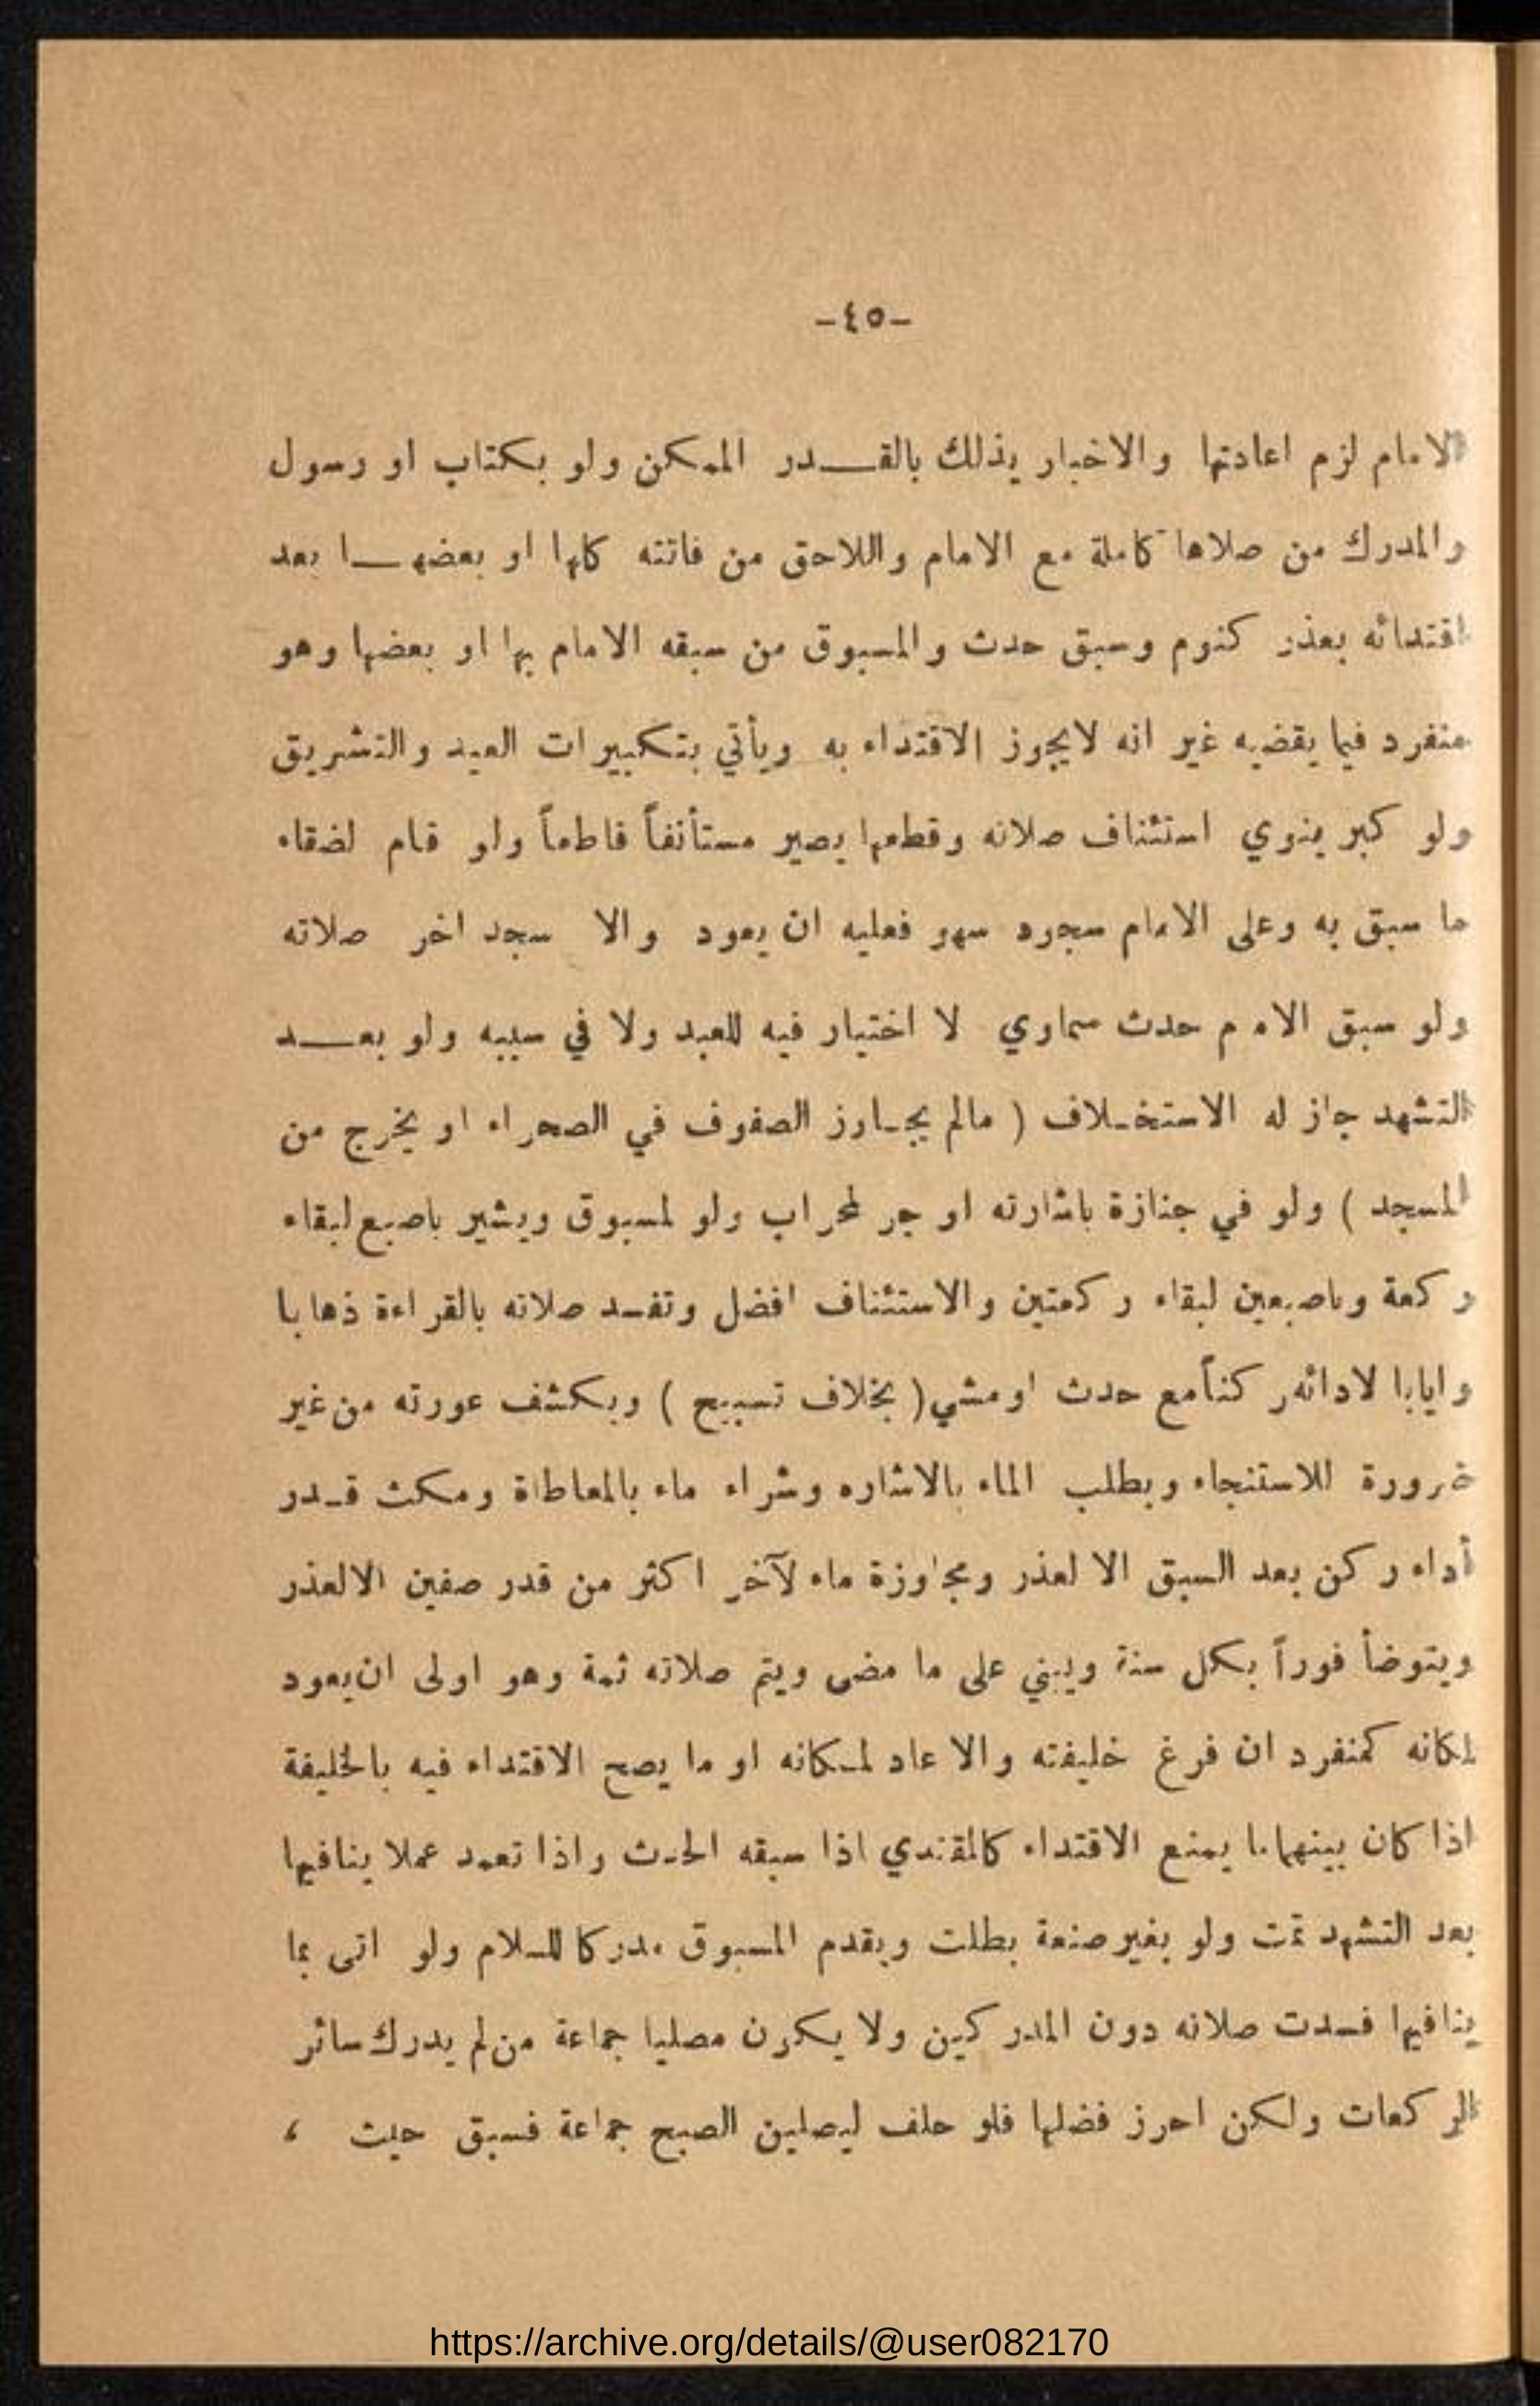 -٤٥-
الامام لزم اعادتها والاخبار بذلك بالقـــدر الممكن ولو بكتاب او رسول
والمدرك من صلاها كاملة مع الامام واللاحق من فاتته كلها او بعضهـــا بعد
اقتدائه بعذر كنوم وسبق حدث والمسبوق من سبقه الامام بها او بعضها وهو
منفرد فيما يقضيه غير انه لايجوز الاقتداء به ويأتي بتكبيرات العيد والتشريق
ولو كبر ينوي استئناف صلاته وقطعها يصير مستأنفاً قاطعاً ولو قام لضقاء
ما سبق به وعلى الامام سجود سهو فعليه ان يعود والا سجد اخر صلاته
ولو سبق الام م حدث سماوي لا اختيار فيه للعبد ولا في سببه ولو بعـــد
التشهد جاز له الاستخـلاف ( مالم يجـاوز الصفوف في الصحراء او يخرج من
المسجد ) ولو في جنازة باشارته او جر لمحراب ولو لمسبوق ويشير باصبع لبقاء
ركعة وباصبعين لبقاء ركعتين والاستئناف افضل وتفسد صلاته بالقراءة ذهابا
وايابا لادائه ركناً مع حدث او مشي ( بخلاف تسبيح ) وبكشف عورته من غير
ضرورة للاستنجاء وبطلب الماء بالاشاره وشراء ماء بالمعاطاة ومكث قـدر
أداء ركن بعد السبق الا لعذر ومجاوزة ماء لآخر اكثر من قدر صفين الالعذر
ويتوضأ فوراً بكل سنة ويبني على ما مضى ويتم صلاته ثمة وهو اولى ان يعود
لمكانه كمنفرد ان فرغ خليفته والا عاد لمـكانه او ما يصح الاقتداء فيه بالخليفة
اذا كان بينهما ما يمنع الاقتداء كالمقتدي اذا سبقه الحدث واذا تعمد عملا ينافيها
بعد التشهد تمت ولو بغير صنعة بطلت ويقدم المسبوق مدركا للسلام ولو اتى بما
ينافيها فسدت صلاته دون المدركين ولا يكون مصليا جماعة من لم يدرك سائر
الركعات ولكن احرز فضلها فلو حلف ليصلين الصبح جماعة فسبق حيث ،
https://archive.org/details/@user082170